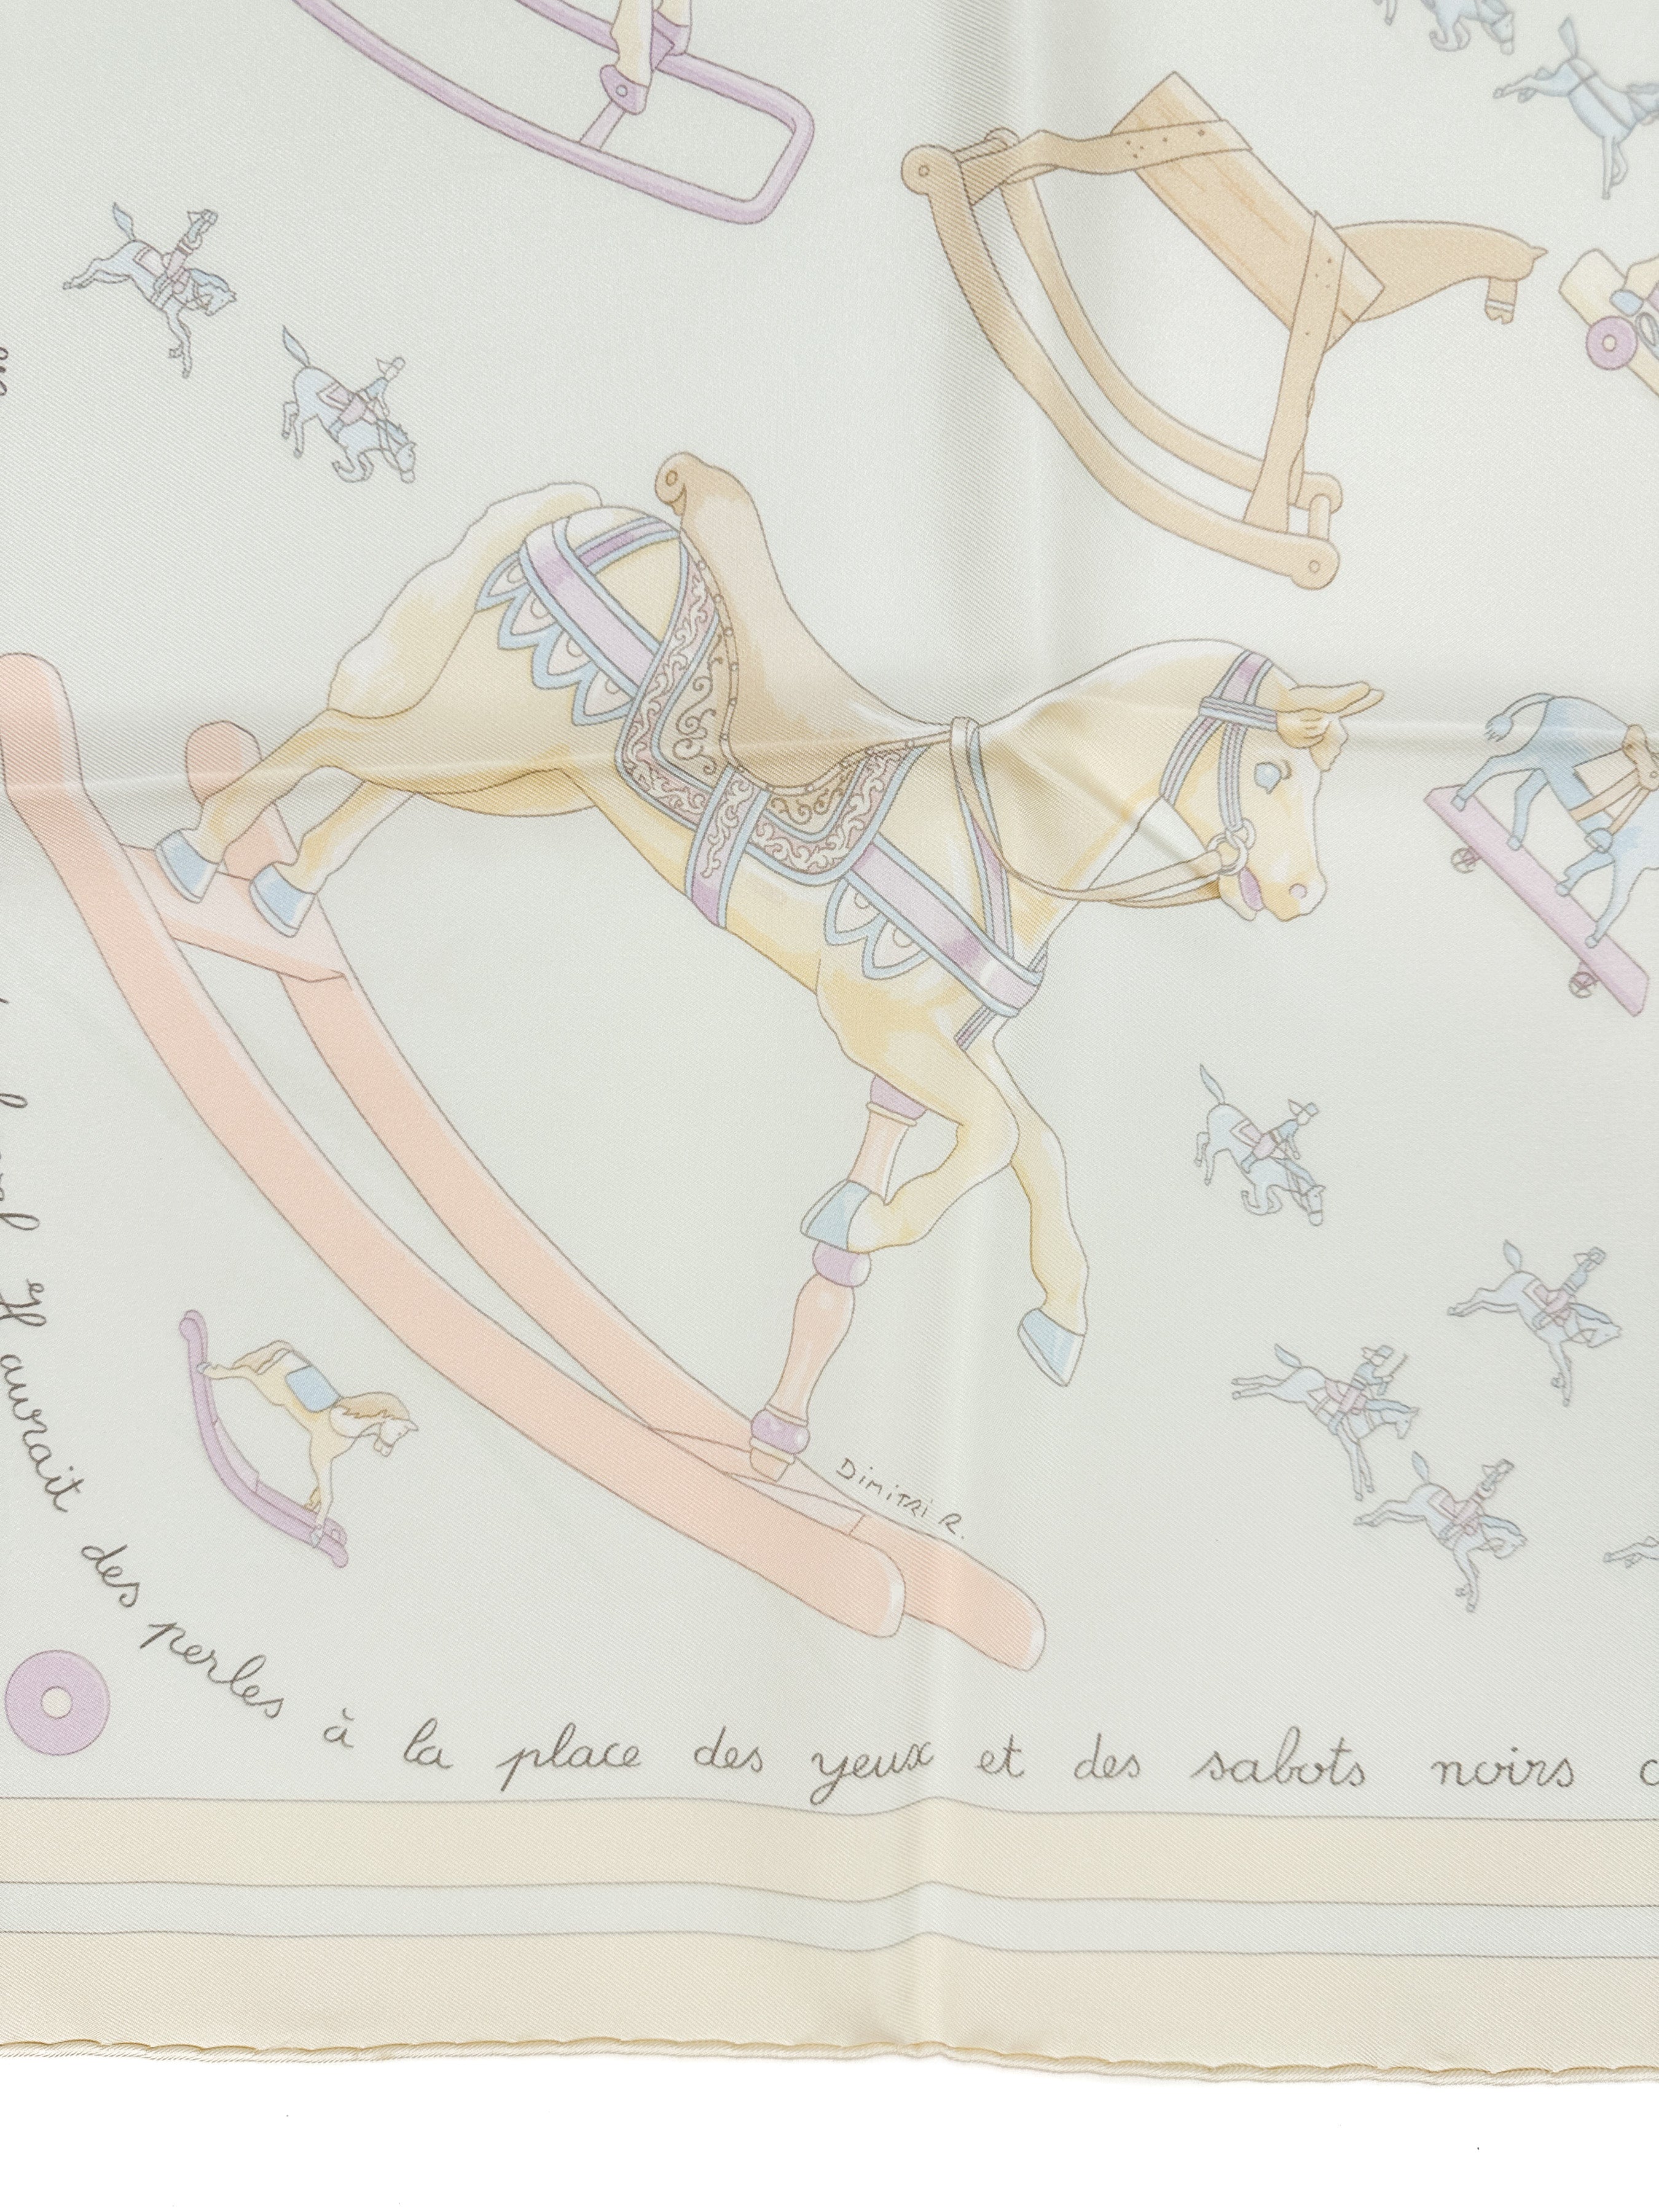 Il aurait des perles à la place des yeux et des sabots noirs
Dimitri R.